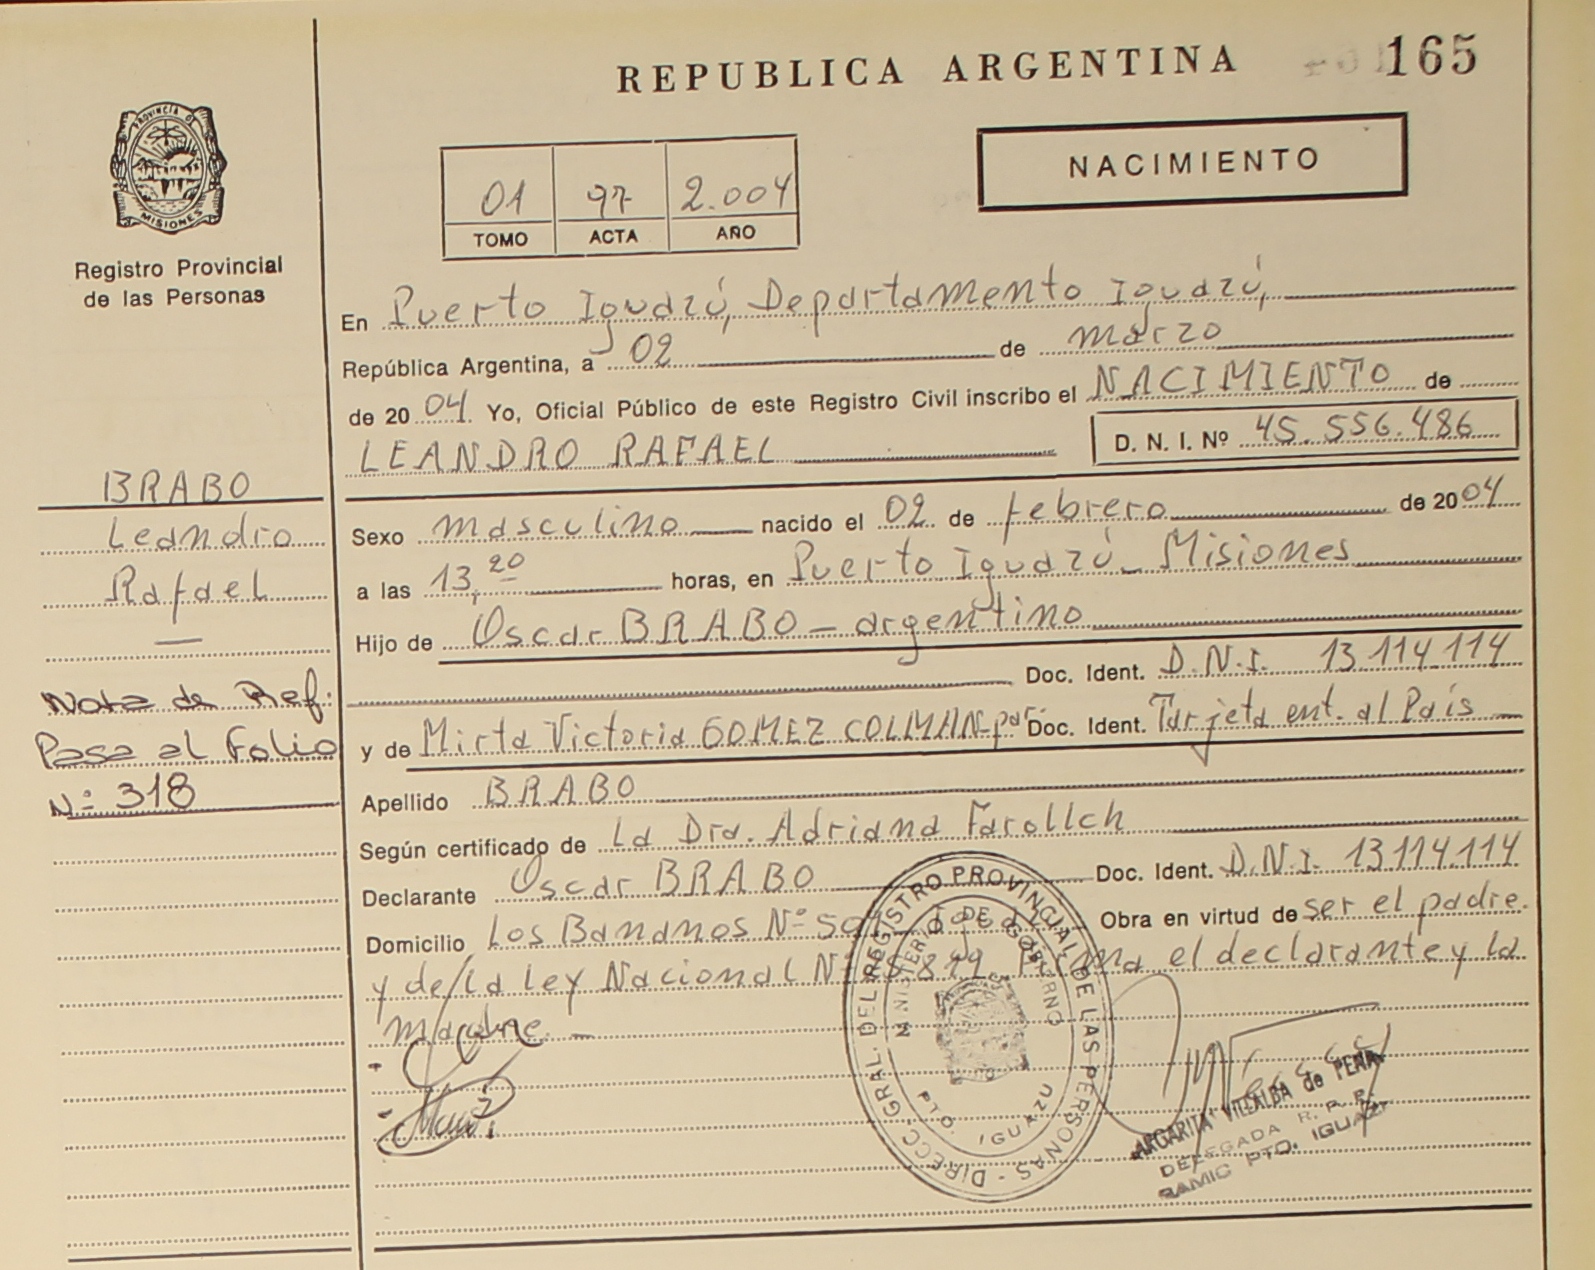 REPUBLICA ARGENTINA 165
PROVINCIA DE
MISIONES
Registro Provincial
de las Personas
01 97 2.004
TOMO ACTA AÑO
NACIMIENTO
En Puerto Iguazú, Departamento Iguazú,
República Argentina, a 02 de marzo
de 2004 Yo, Oficial Público de este Registro Civil inscribo el NACIMIENTO de
LEANDRO RAFAEL D. N. I. Nº 45.556.486
BRABO
Leandro
Rafael
—
Nota de Ref:
Pasa al Folio
Nº 318
Sexo masculino nacido el 02 de febrero de 2004
a las 13,20 horas, en Puerto Iguazú_ Misiones
Hijo de Oscar BRABO - argentino
Doc. Ident. D.N.I. 13.114.114
y de Mirta Victoria GOMEZ COLMAN-par. Doc. Ident. Tarjeta ent. al País —
Apellido BRABO
Según certificado de La Dra. Adriana Farollch
Declarante Oscar BRABO Doc. Ident. D.N.I. 13.114.114
Domicilio Los Bananos Nº Obra en virtud de ser el padre.
y de/la Ley Nacional Nº el declarante y la
madre. —
DIRECC. GRAL. DEL REGISTRO PROVINCIAL DE LAS PERSONAS
MINISTERIO DE GOBIERNO
PTO. IGUAZU
MARGARITA VILLALBA de PEÑA
DELEGADA R. P. P.
RAMIC PTO. IGUAZU